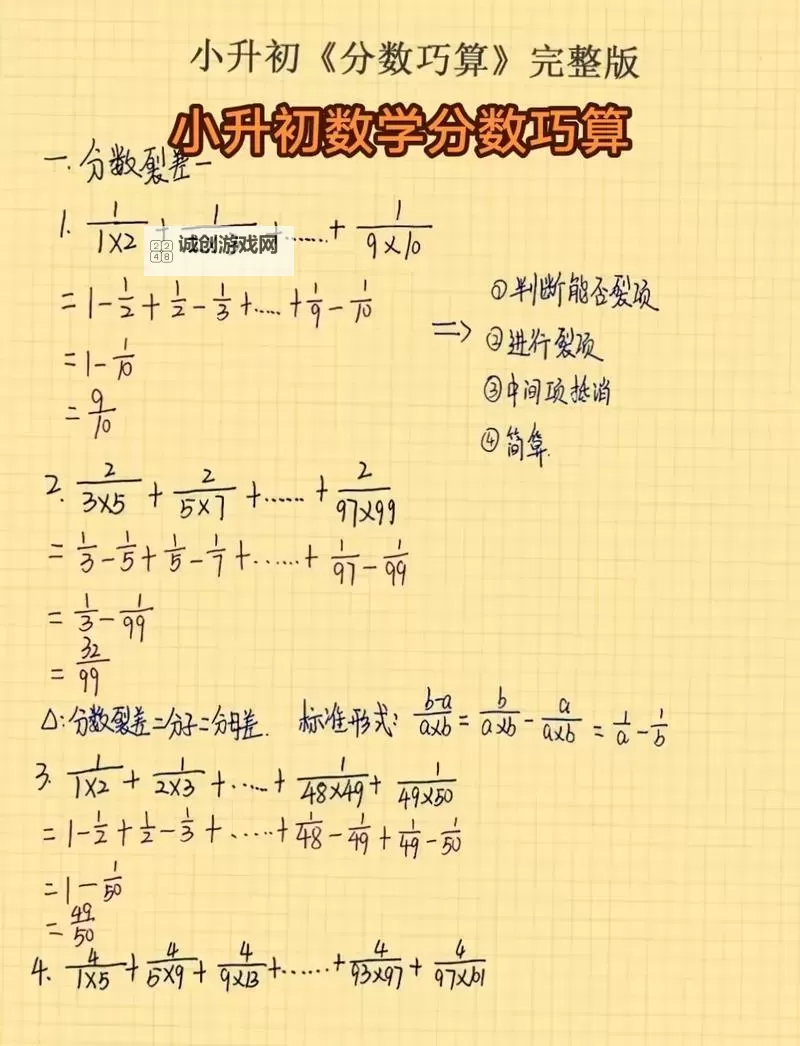 小升初《分数巧算》完整版
小升初数学分数巧算
一.分数裂差一
1. 1/(1×2) + 1/ +……+ 1/(9×10)
诚创游戏网
2248
=1-1/2+1/2-1/3+……+1/9-1/10
=1-1/10
=9/10
=>
①判断能否裂项
②进行裂项
③中间项抵消
④简算.
2. 2/(3×5) + 2/(5×7) +……+ 2/(97×99)
=1/3-1/5+1/5-1/7+……+1/97-1/99
=1/3-1/99
=32/99
△:分数裂差=分子=分母差. 标准形式: (b-a)/(a×b) = b/(a×b) - a/(a×b) = 1/a - 1/b
3. 1/(1×2) + 1/(2×3) +……+ 1/(48×49) + 1/(49×50)
=1-1/2+1/2-1/3+……+1/48-1/49+1/49-1/50
=1-1/50
=49/50
4. 4/(1×5) + 4/(5×9) + 4/(9×13) +……+ 4/(93×97) + 4/(97×101)